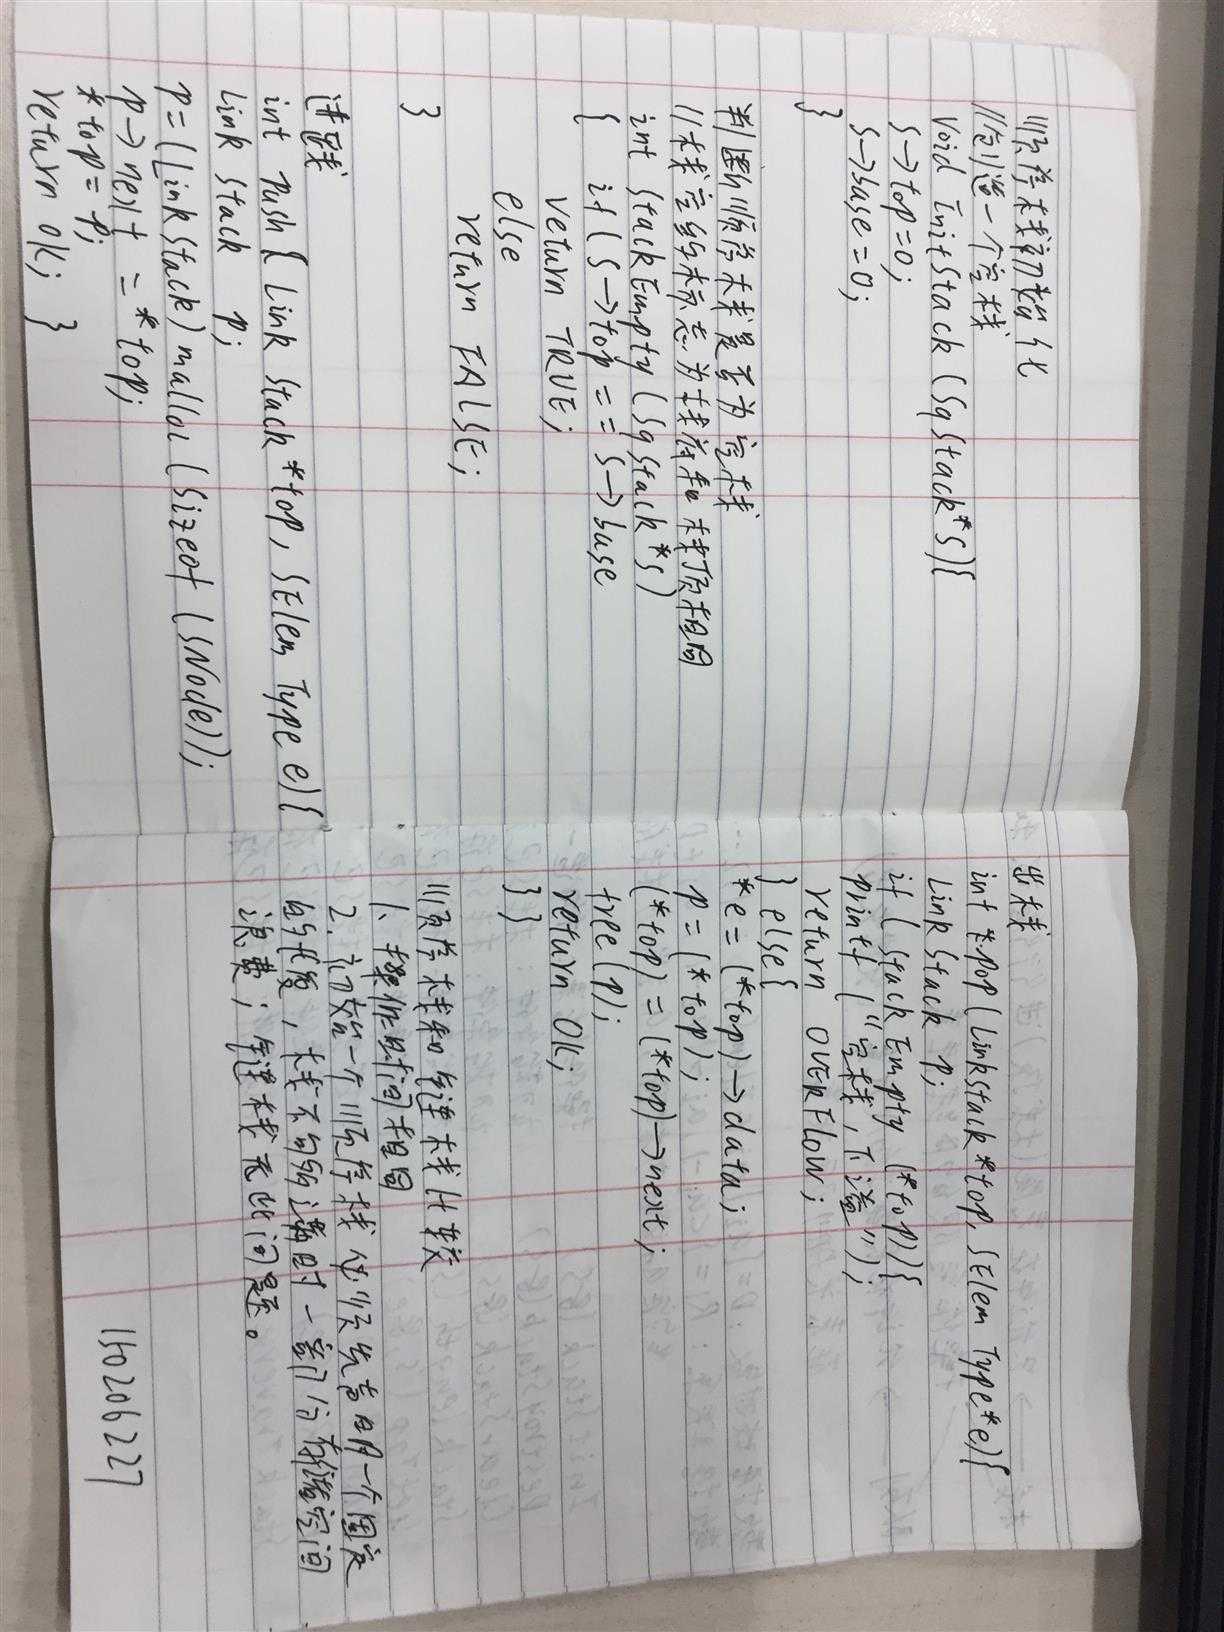 顺序栈初始化
//创造一个空栈
Void InitStack (SqStack*S){
S→top=0;
S→base=0;
}
判断顺序栈是否为空栈
//栈空的标志为栈底和栈顶相同
int StackEmpty (SqStack*S)
{ if (S→top == S→base
return TRUE;
else
return FALSE;
}
进栈
int push { Link Stack*top, SElem Type e){
Link Stack p;
p=(LinkStack)malloc(Sizeof (SNode));
p→next = *top;
*top=p;
return OK; }
出栈
int *pop(Linkstack*top, SElem Type*e){
LinkStack p;
if (StackEmpty (*top)){
printf ("空栈,下溢");
return OVERFLOW;
} else{
*e=(*top)→data;
p=(*top);
(*top)=(*top)→next;
free(p);
return OK;
}}
顺序栈和链栈比较
1、操作时间相同
2、初始一个顺序栈必须先声明一个固定
的长度,栈不够满时一部分存储空间
浪费;链栈无此问题。
150206227